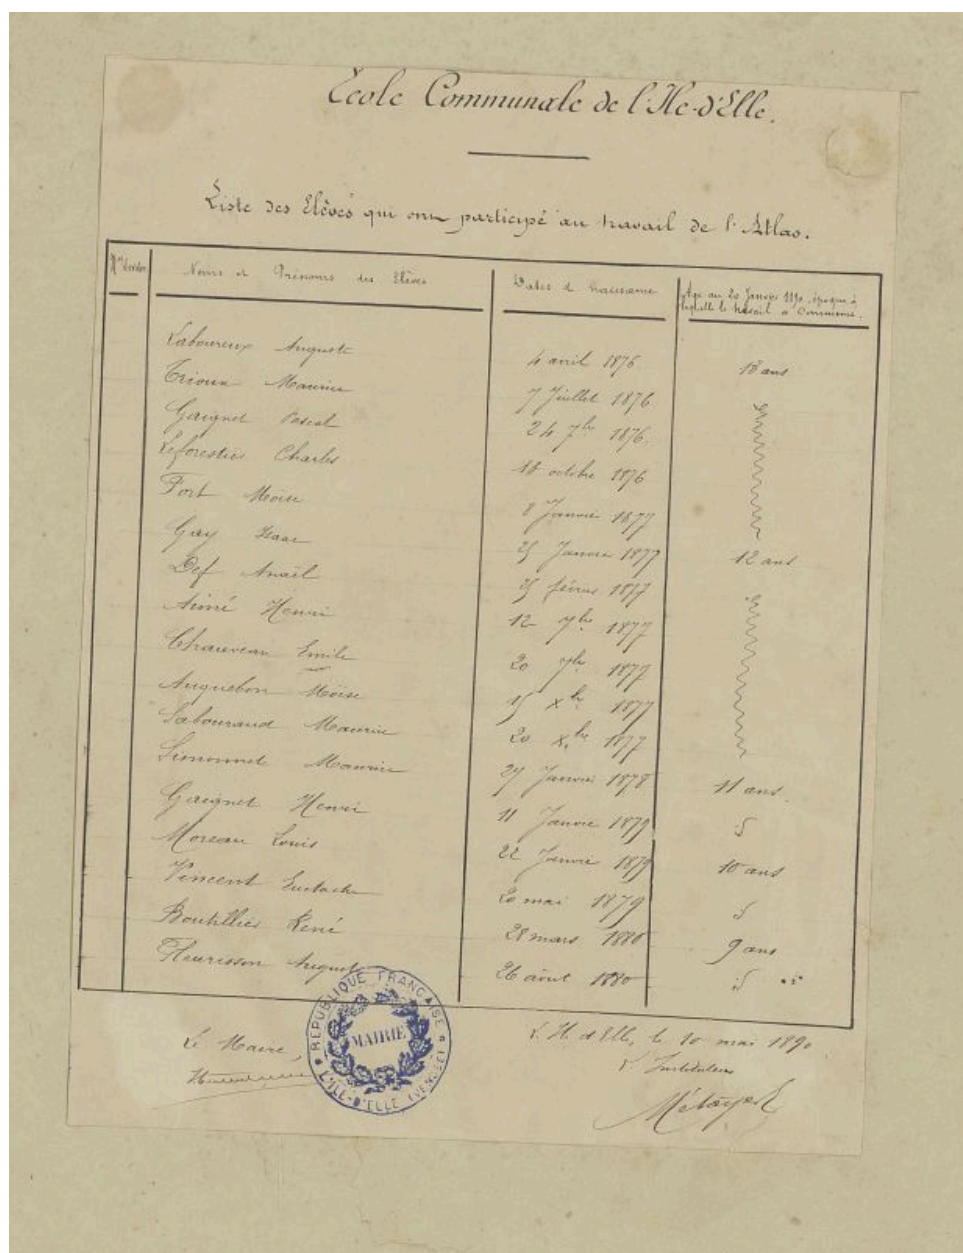 Ecole Communale de l'Ile-d'Elle.
Liste des Elèves qui ont participé au travail de l'Atlas.
Nos d'ordre Noms et Prénoms des Elèves Dates de naissance Age au 20 Janvier 1890, époque à
laquelle le travail a commencé.
Laboureux Auguste 4 avril 1876 13 ans
Trioux Maurice 7 Juillet 1876
Gaignet Pascal 24 7bre 1876
Leforestier Charles 18 octobre 1876
Fort Moïse 8 Janvier 1877
Gay Isaac 25 Janvier 1877 12 ans
Def Anaël 25 février 1877
Aimé Henri 12 7bre 1877
Chauveau Emile 20 7bre 1877
Auguebon Moïse 15 Xbre 1877
Sabouraud Maurice 20 Xbre 1877
Simonnet Maurice 27 Janvier 1878 11 ans
Gaignet Henri 11 Janvier 1879
Moreau Louis 22 Janvier 1879 10 ans
Vincent Eustache 20 mai 1879
Boutillier René 28 mars 1880 9 ans
Fleurisson August 26 août 1880
Le Maire, L'Ile d'Elle, le 10 mai 1890
L'Instituteur
Métayer
RÉPUBLIQUE FRANÇAISE
MAIRIE
L'ILE-D'ELLE (VENDÉE)